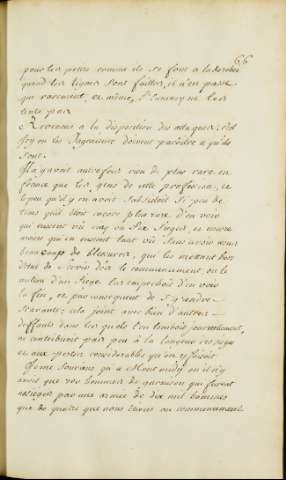 66
pour les prises comme ils se font a la derobée
quand les lignes sont faittes, il n'en passe
que rarement, et même, l'ennemy ne les
tente pas
Revenons a la disposition des attaques; c'est
icy ou les Ingenieurs doivent paroitre ce qu'ils
sont.
Il n'y avoit autrefois rien de plus rare en
france que les gens de cette profession, et
le peu qu'il y en avoit subsistoit si peu de
tems qu'il étoit encore plus rare d'en voir
qui eussent vû cinq ou six sieges, et encore
moins qui en eussent tant vû sans avoir reçu
beaucoup de blessures, qui les mettant hors
d'état de servir dès le commencement ou le
milieu d'un siege les empechoit d'en voir
la fin, et par consequent de s'y rendre
scavants; cela joint avec bien d'autres
deffauts dans les quels l'on tomboit journellement,
ne contribuoit pas peu a la longueur des sieges
et aux pertes considerables qu'on y faisoit
Je me souviens qu'a Montmidy ou il n'y
avoit que 700 hommes de garnison qui furent
assiegés par une armée de dix mil hommes
que de quatre que nous étions au commencement